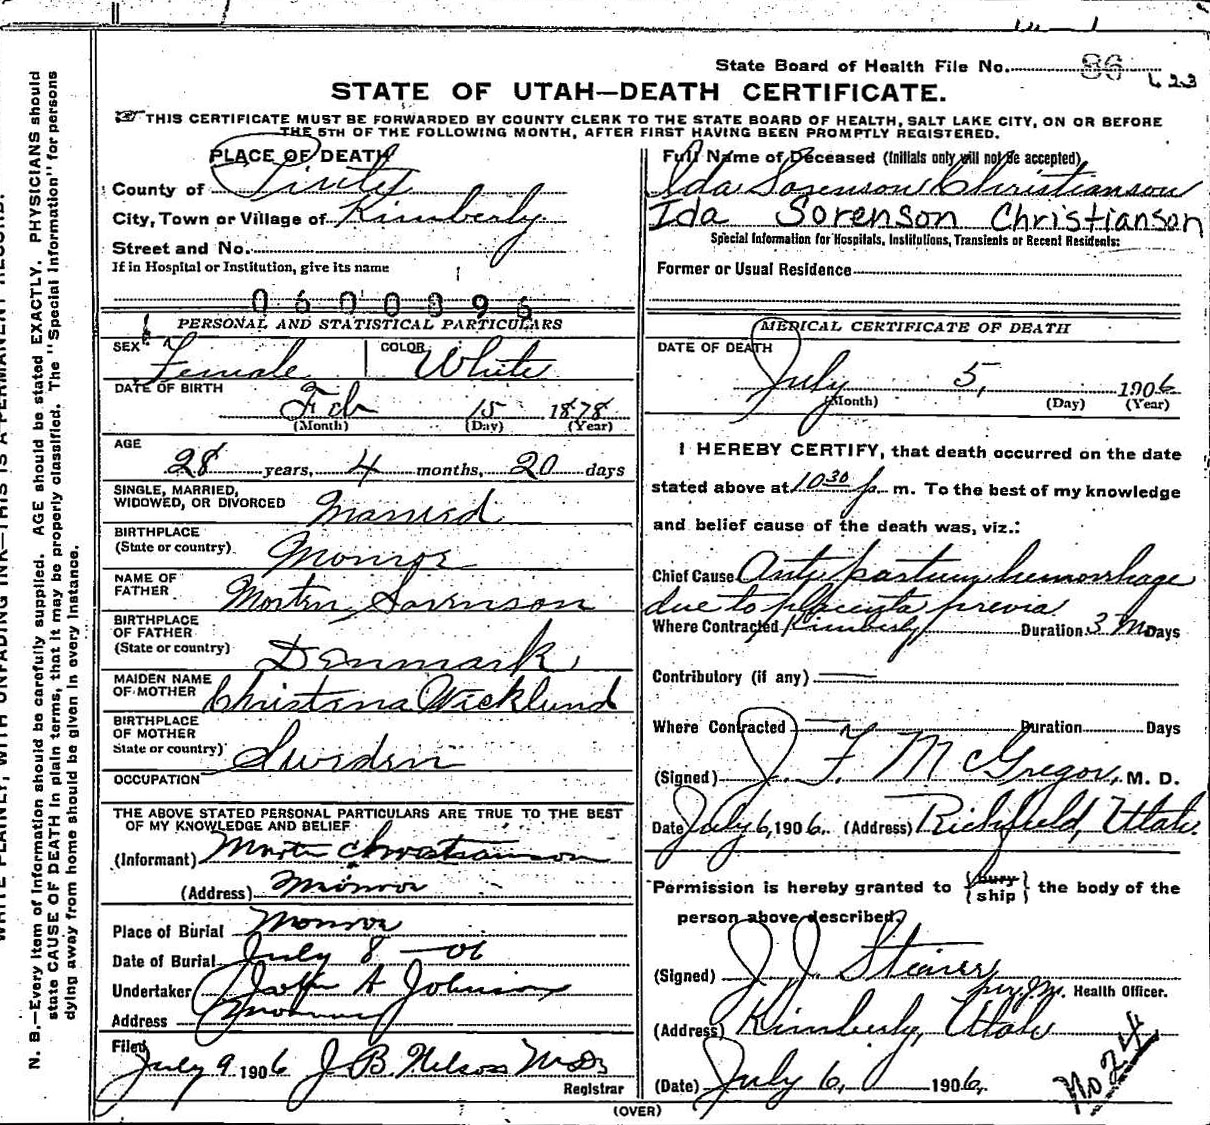 State Board of Health File No. 86 423
STATE OF UTAH—DEATH CERTIFICATE.
THIS CERTIFICATE MUST BE FORWARDED BY COUNTY CLERK TO THE STATE BOARD OF HEALTH, SALT LAKE CITY, ON OR BEFORE
THE 5TH OF THE FOLLOWING MONTH, AFTER FIRST HAVING BEEN PROMPTLY REGISTERED.
PLACE OF DEATH
County of Piute
City, Town or Village of Kimberly
Street and No.
If in Hospital or Institution, give its name
0600896
PERSONAL AND STATISTICAL PARTICULARS
SEX Female COLOR White
DATE OF BIRTH
Feb 15 1878
(Month) (Day) (Year)
AGE
28 years, 4 months, 20 days
SINGLE, MARRIED,
WIDOWED, OR DIVORCED Married
BIRTHPLACE
(State or country) Monroe
NAME OF
FATHER Morten Sorenson
BIRTHPLACE
OF FATHER
(State or country) Denmark
MAIDEN NAME
OF MOTHER Christena Wicklund
BIRTHPLACE
OF MOTHER
State or country) Sweden
OCCUPATION
THE ABOVE STATED PERSONAL PARTICULARS ARE TRUE TO THE BEST
OF MY KNOWLEDGE AND BELIEF
(Informant) Christianson
(Address) Monroe
Place of Burial Monroe
Date of Burial July 8 —06
Undertaker A Johnson
Address Monroe
Filed July 9 1906 J B Nelson
Registrar
Full Name of Deceased (Initials only will not be accepted)
Ida Sorenson Christianson
Ida Sorenson Christianson
Special Information for Hospitals, Institutions, Transients or Recent Residents:
Former or Usual Residence
MEDICAL CERTIFICATE OF DEATH
DATE OF DEATH
July 5, 1906
(Month) (Day) (Year)
I HEREBY CERTIFY, that death occurred on the date
stated above at 10 30 p. m. To the best of my knowledge
and belief cause of the death was, viz.:
Chief Cause Ante partum hemorrhage
due to placenta previa
Where Contracted Kimberly Duration 3 M Days
Contributory (if any)
Where Contracted Duration Days
(Signed) J. F. McGregor, M. D.
Date July 6, 1906. (Address) Richfield, Utah.
Permission is hereby granted to {bury
ship} the body of the
person above described.
(Signed) J J Steiner
Health Officer.
(Address) Kimberly, Utah
(Date) July 6, 1906.
No 24
(OVER)
WRITE PLAINLY, WITH UNFADING INK—THIS IS A PERMANENT RECORD.
N. B.—Every item of information should be carefully supplied. AGE should be stated EXACTLY. PHYSICIANS should
state CAUSE OF DEATH in plain terms, that it may be properly classified. The "Special Information" for persons
dying away from home should be given in every instance.